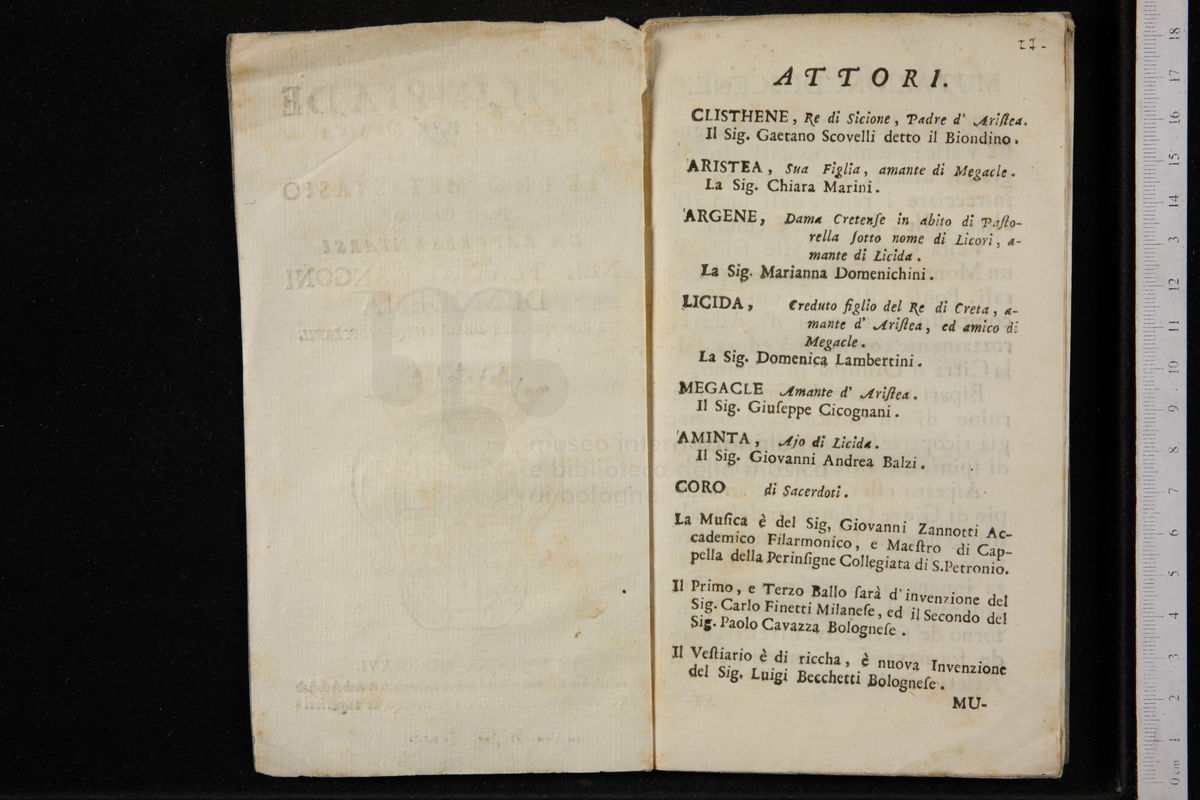 ATTORI.
CLISTHENE, Re di Sicione, Padre d' Ariſtea.
Il Sig. Gaetano Scovelli detto il Biondino.
ARISTEA, Sua Figlia, amante di Megacle.
La Sig. Chiara Marini.
ARGENE, Dama Cretenſe in abito di Paſto-
rella ſotto nome di Licori, a-
mante di Licida.
La Sig. Marianna Domenichini.
LICIDA, Creduto figlio del Re di Creta, a-
mante d' Ariſtea, ed amico di
Megacle.
La Sig. Domenica Lambertini.
MEGACLE Amante d' Ariſtea.
Il Sig. Giuſeppe Cicognani.
AMINTA, Ajo di Licida.
Il Sig. Giovanni Andrea Balzi.
CORO di Sacerdoti.
La Muſica è del Sig, Giovanni Zannotti Ac-
cademico Filarmonico, e Maeſtro di Cap-
pella della Perinſigne Collegiata di S.Petronio.
Il Primo, e Terzo Ballo ſarà d'invenzione del
Sig. Carlo Finetti Milaneſe, ed il Secondo del
Sig. Paolo Cavazza Bologneſe.
Il Veſtiario è di riccha, è nuova Invenzione
del Sig. Luigi Becchetti Bologneſe.
MU-
museo
e biblioteca della musica
di bologna
0 cm 1 2 3 4 5 6 7 8 9 10 11 12 13 14 15 16 17 18